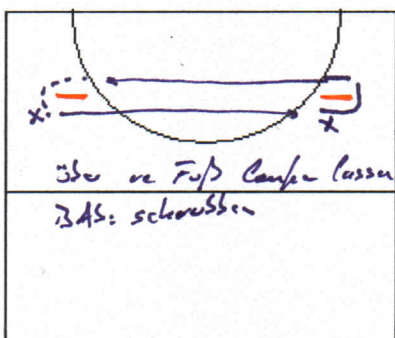 X
X
über re Fuß laufen lassen
BAS: schrubben